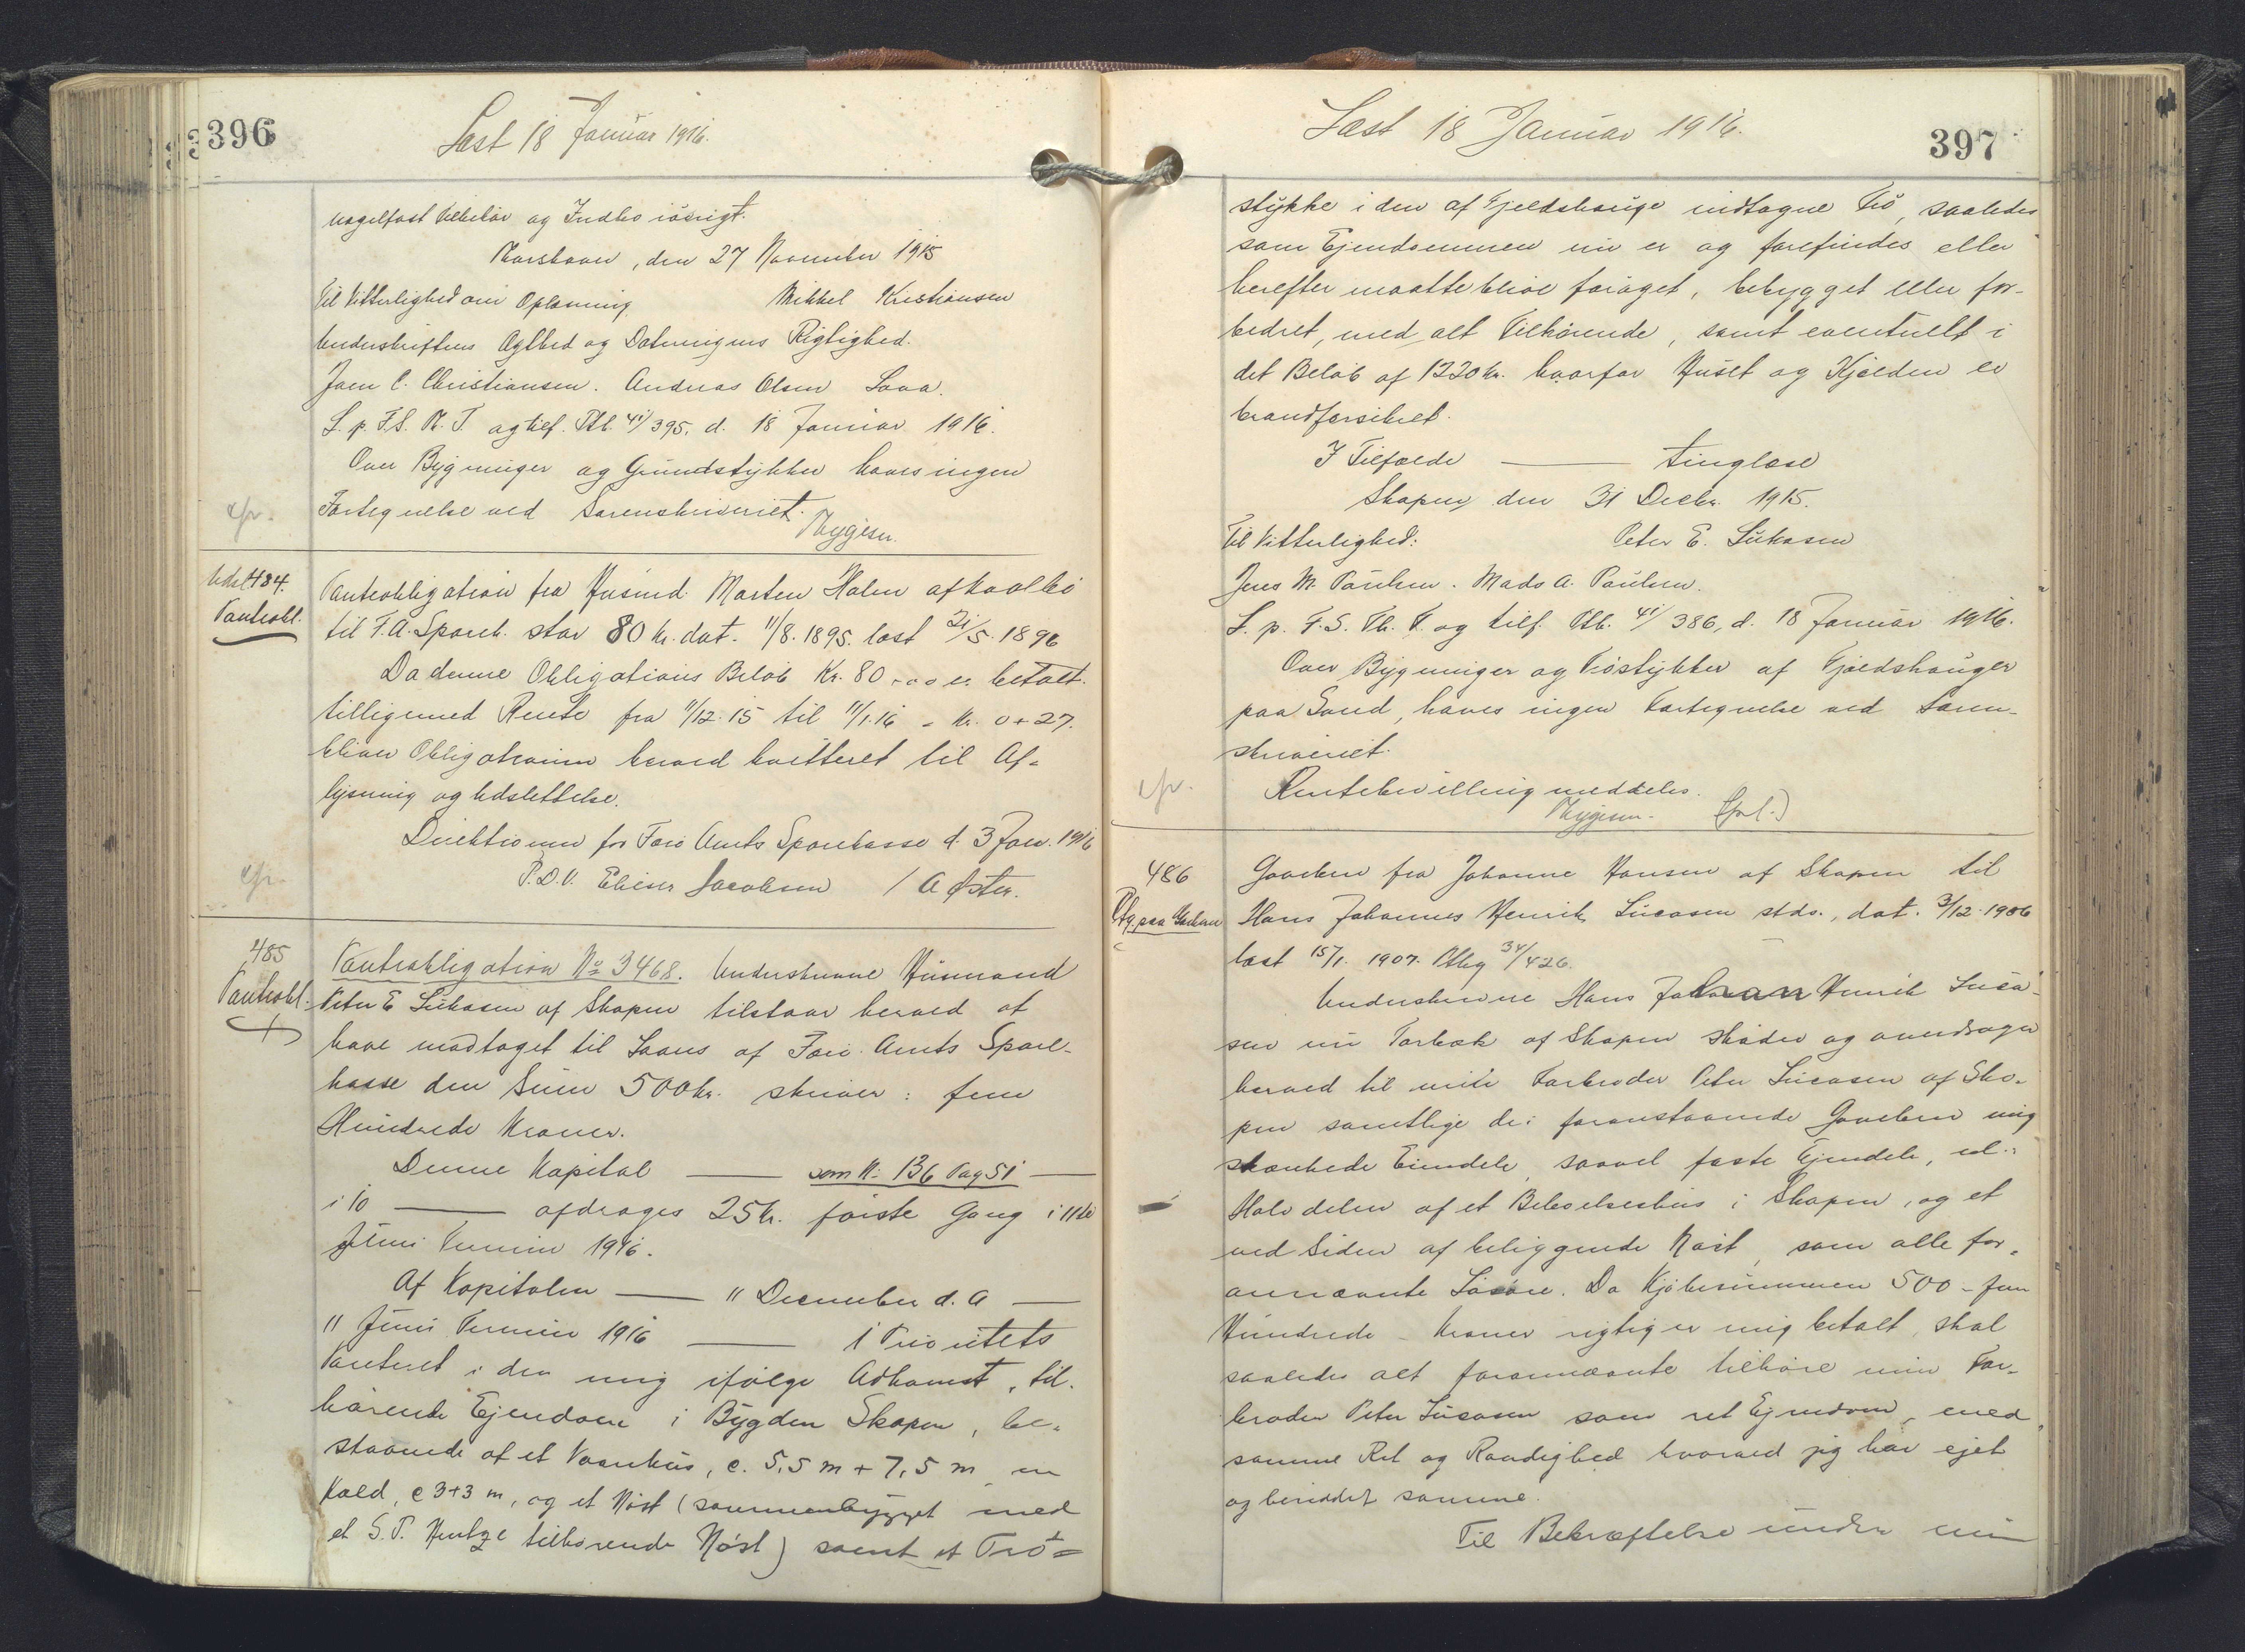 396
Læst 18 Januar 1916.
nagelfast Tilbehør og Indbo iøvrigt.
Thorshavn, den 27 November 1915
Til Vitterlighed om Oplæsning, Mikkel Kristiansen
Underskriftens Ægthed og Dateringens Rigtighed.
Joen C. Christiansen. Andreas Olsen Lava.
L. p. F.S. Th. T. og tilf. Ptb. 41/395, d. 18 Januar 1916.
Over Bygninger og Grundstykker haves ingen
Fortegnelse ved Sorenskriveriet.
Thygesen.
cfr.
Udsl. 484.
Panteobl.
Panteobligation fra Husmd. Morten Holm af Kvalbø
til F.A. Sparek. stor 80 Kr. dat. 11/8. 1895. læst 21/5. 1896
Da denne Obligations Beløb Kr. 80,00 er betalt
tilligemed Rente fra 11/12. 15 til 11/1. 16 - Kr. 0+27.
bliver Obligationen herved kvitteret til Af-
lysning og Udslettelse.
Direktionen for Færø Amts Sparekasse d. 3 Jan. 1916
P.D.V. Elieser Jacobsen / A Øster.
cfr.
485
Panteobl.
Panteobligation No 3468. Underskrevne Husmand
Peter E Lukasen af Skopen tilstaar herved at
have modtaget til Laans af Færø Amts Spare-
kasse den Sum 500 Kr. skriver: fem
Hundrede Kroner.
Denne Kapital — som N: 136 Pag 51 —
i 10 — afdrages 25 Kr. første Gang i 11te
Juni Termin 1916.
Af Kapitalen — 11 December d. A —
11 Juni Termin 1916 — 1 Prioritets
Panteret i den mig ifølge Adkomst, til-
hørende Ejendom i Bygden Skopen, be-
staaende af et Vaanhus, c. 5,5 m + 7,5 m, en
Kjæld, c 3+3 m, og et Nøst (sammenbygget med
et S. P. Hentze tilhørende Nøst) samt et Trø-
Læst 18 Januar 1916.
397
stykke i den af Fjeldshauge indtagne Trø, saaledes
som Ejendommen nu er og forefindes eller
herefter maatte blive forøget, bebygget eller for-
bedret, med alt Tilhørende, samt eventuelt i
det Beløb af 1220 Kr. hvorfor Huset og Kjælden er
brandforsikret.
I Tilfælde — tinglæse
Skopen, den 31 Decbr. 1915.
Til Vitterlighed: Peter E. Lukasen
Jens M. Poulsen. Mads A. Poulsen.
L. p. F.S. Th. T. og tilf. Ptb. 41/386, d. 18 Januar 1916.
Over Bygninger og Trøstykker af Fjældshauger
paa Sand, haves ingen Fortegnelse ved Soren-
skriveriet.
Rentebevilling meddeles.
Thygesen.
cfr.
486
Ptg. paa Gavebrev
Gavebrev fra Johanne Hansen af Skopen til
Hans Johannes Henrik Lucasen stds., dat. 3/12. 1906
læst 15/1. 1907. Ptbg 34/426.
Underskrevne Hans Johan Henrik Luca-
sen nu Torbæk af Skopen skøder og overdrager
herved til min Farbroder Peter Lucasen af Sko-
pen samtlige de i foranstaaende Gavebrev mig
skænkede Eiendele, saavel faste Ejendele, ɔ:
Halvdelen af et Beboelseshus i Skopen, og et
ved Siden af beliggende Nøst, som alle for-
annævnte Løsøre. Da Kjøbesummen 500 - fem
Hundrede - Kroner rigtig er mig betalt, skal
saaledes alt forannævnte tilhøre min Far-
broder Peter Lucasen som ret Ejendom, med
samme Ret og Raadighed hvormed jeg har ejet
og besiddet samme.
Til Bekræftelse under min